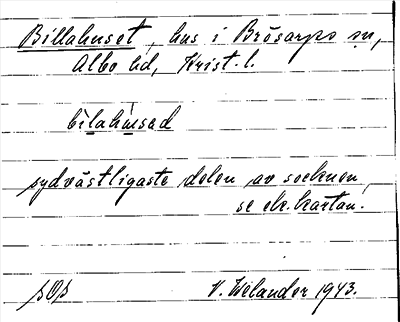 Billahuset, hus i Brösarps sn,
Albo hd, Krist. l.
bìlahùsad
sydvästligaste delen av socknen,
se ek. kartan.
sOs
V. Welander 1943.